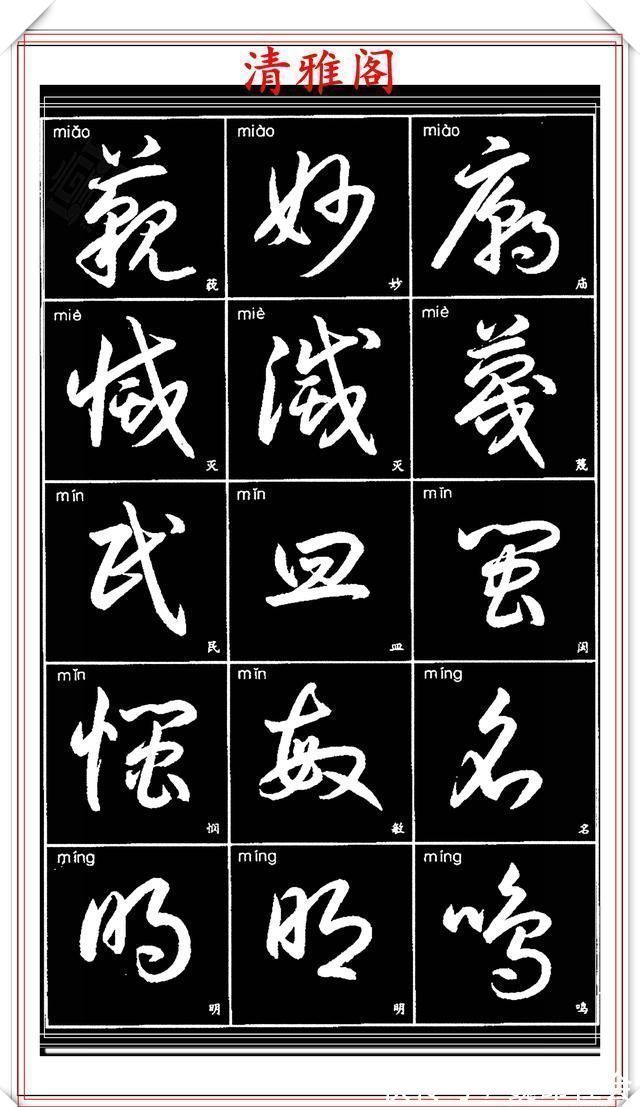 清雅阁
miǎo miào miào
藐 妙 廟
藐 妙 庙
miè miè miè
搣 滅 蔑
灭 灭 蔑
mín mǐn mǐn
民 皿 閩
民 皿 闵
mǐn mǐn míng
憫 敏 名
悯 敏 名
míng míng míng
明 明 鳴
明 明 鸣